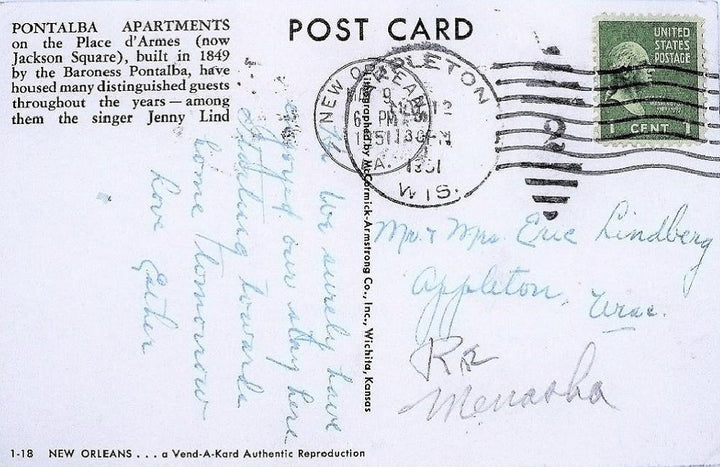 PONTALBA APARTMENTS
on the Place d'Armes (now
Jackson Square), built in 1849
by the Baroness Pontalba, have
housed many distinguished guests
throughout the years — among
them the singer Jenny Lind
POST CARD
UNITED
STATES
POSTAGE
1 CENT
NEW ORLEANS
9
6 PM
1951
LA.
APPLETON
12
PM
1951
WIS.
Lithographed by McCormick-Armstrong Co., Inc., Wichita, Kansas
We surely have
enjoyed our stay here
Starting towards
home tomorrow
Love Esther
Mr. & Mrs. Eric Lindberg
Appleton, Wisc.
Menasha
1-18 NEW ORLEANS . . . a Vend-A-Kard Authentic Reproduction